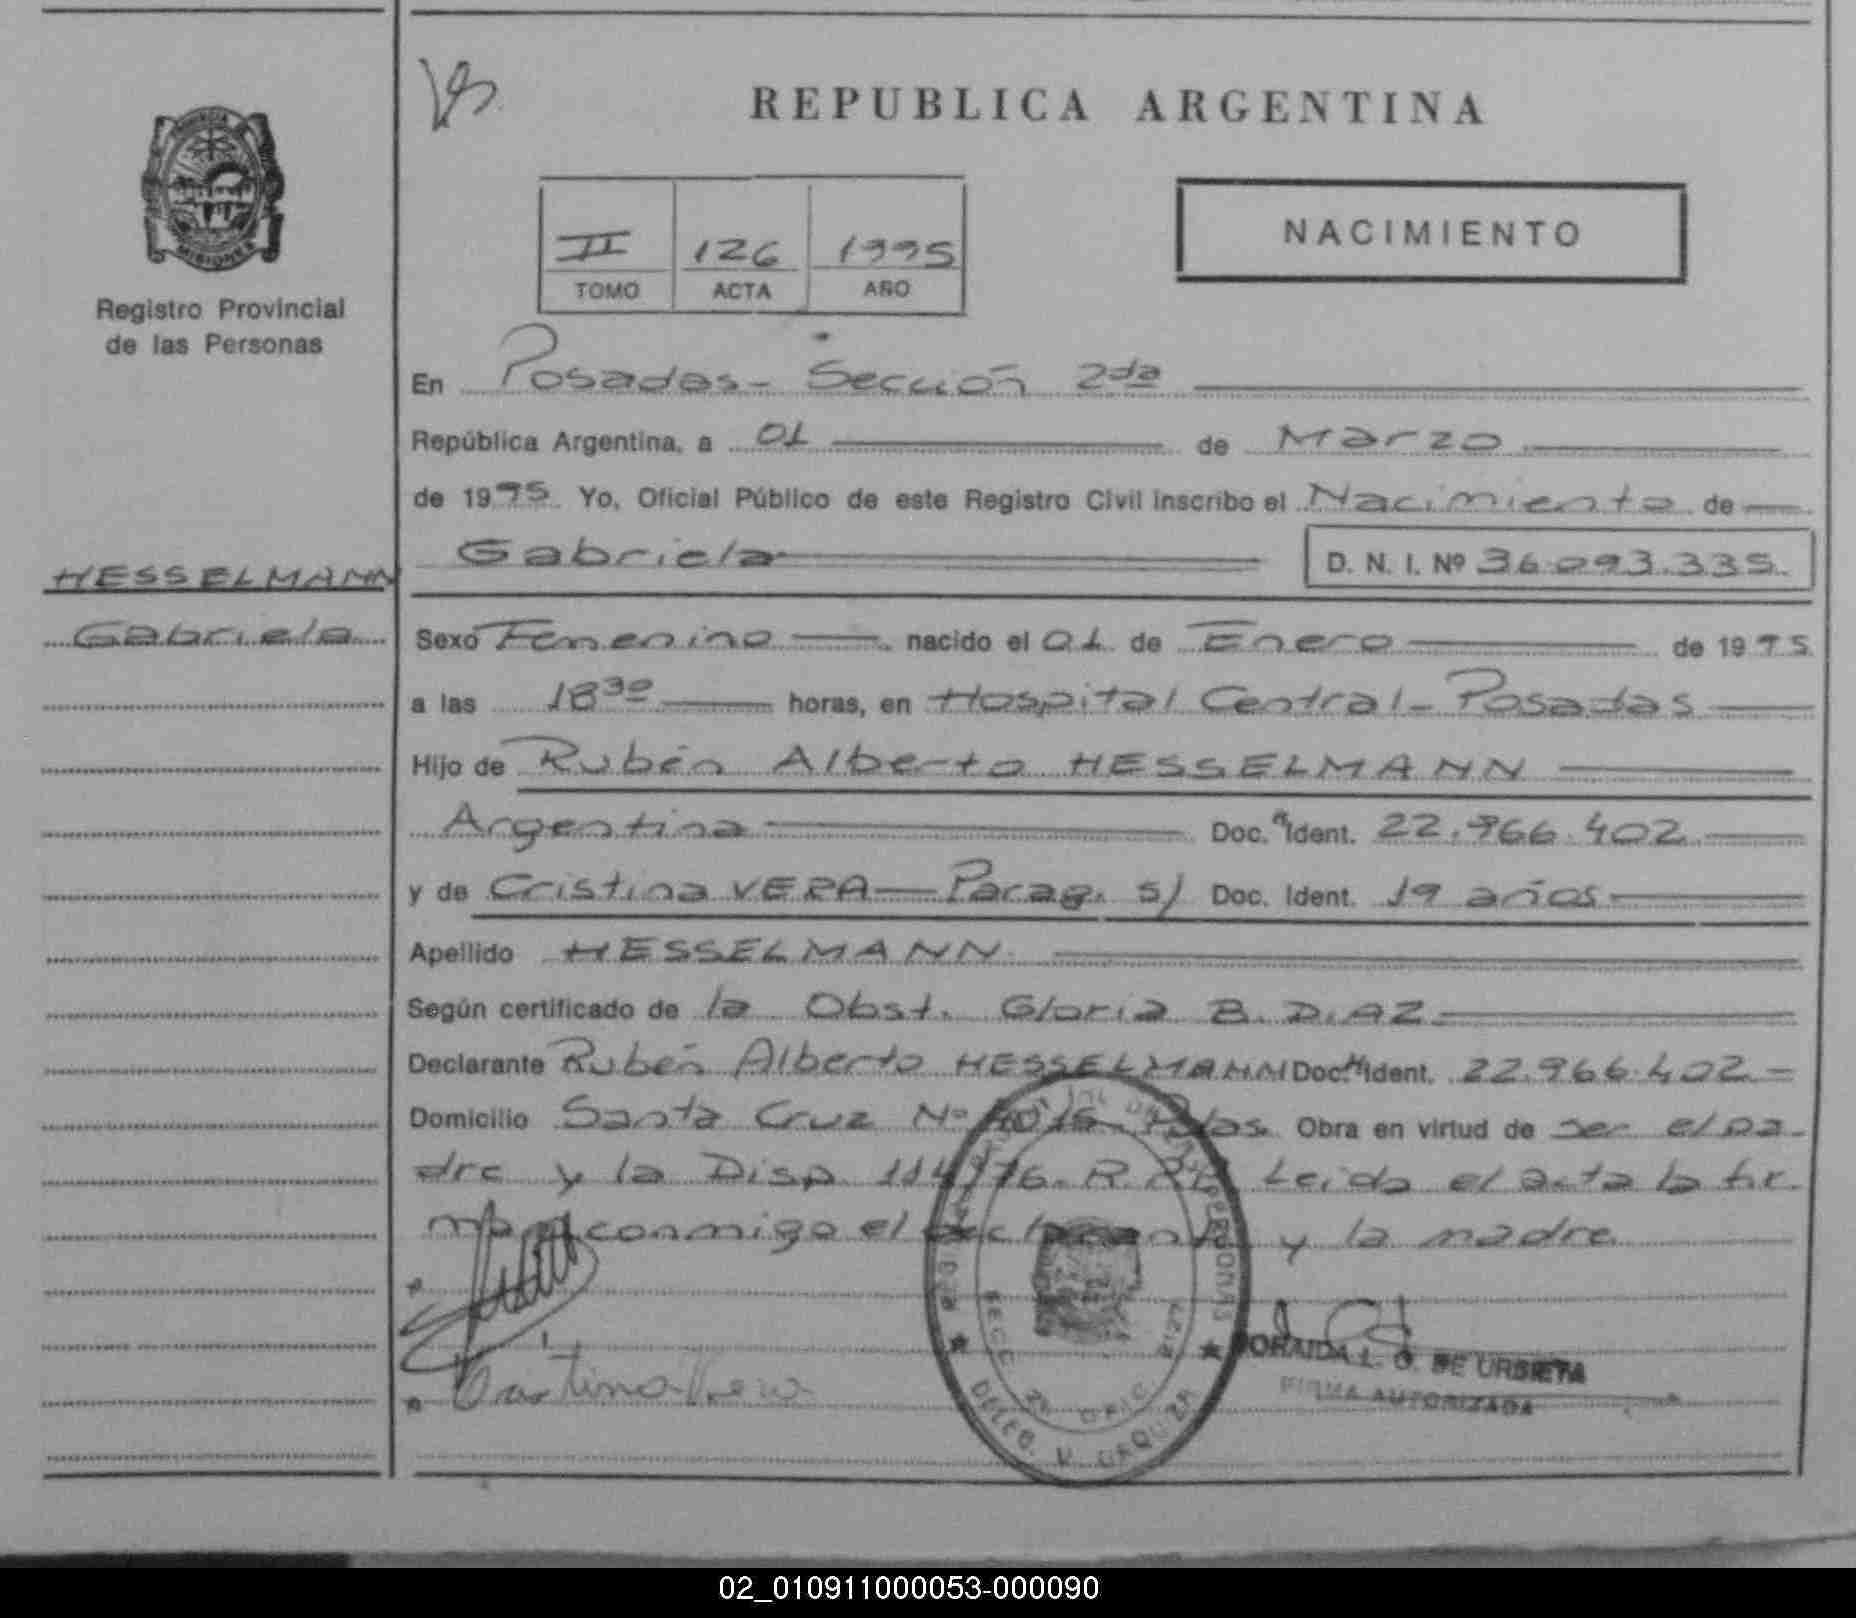 REPUBLICA ARGENTINA
PROVINCIA
MISIONES
Registro Provincial
de las Personas
II 126 1995
TOMO ACTA AÑO
NACIMIENTO
En Posadas - Sección 2da
República Argentina, a 01 de Marzo
de 1995 Yo, Oficial Público de este Registro Civil inscribo el Nacimiento de
HESSELMANN
Gabriela
Gabriela D. N. I. Nº 36.093.335
Sexo Femenino nacido el 01 de Enero de 1995
a las 18 30 horas, en Hospital Central - Posadas
Hijo de Rubén Alberto HESSELMANN
Argentina Doc. Ident. 22.966.402
y de Cristina VERA - Parag. s/ Doc. Ident. 19 años
Apellido HESSELMANN
Según certificado de la Obst. Gloria B. DIAZ
Declarante Rubén Alberto HESSELMANN Doc. Ident. 22.966.402
Domicilio Santa Cruz Nº Pdas. Obra en virtud de ser el pa-
dre y la Disp. 114/76. R.P.P. Leida el acta la fir-
man conmigo el declarante y la madre
Cristina Vera
L. O. DE URSIETA
FIRMA AUTORIZADA
SECC. 2ª OFIC.
DELEG. V. URQUIZA
02_010911000053-000090